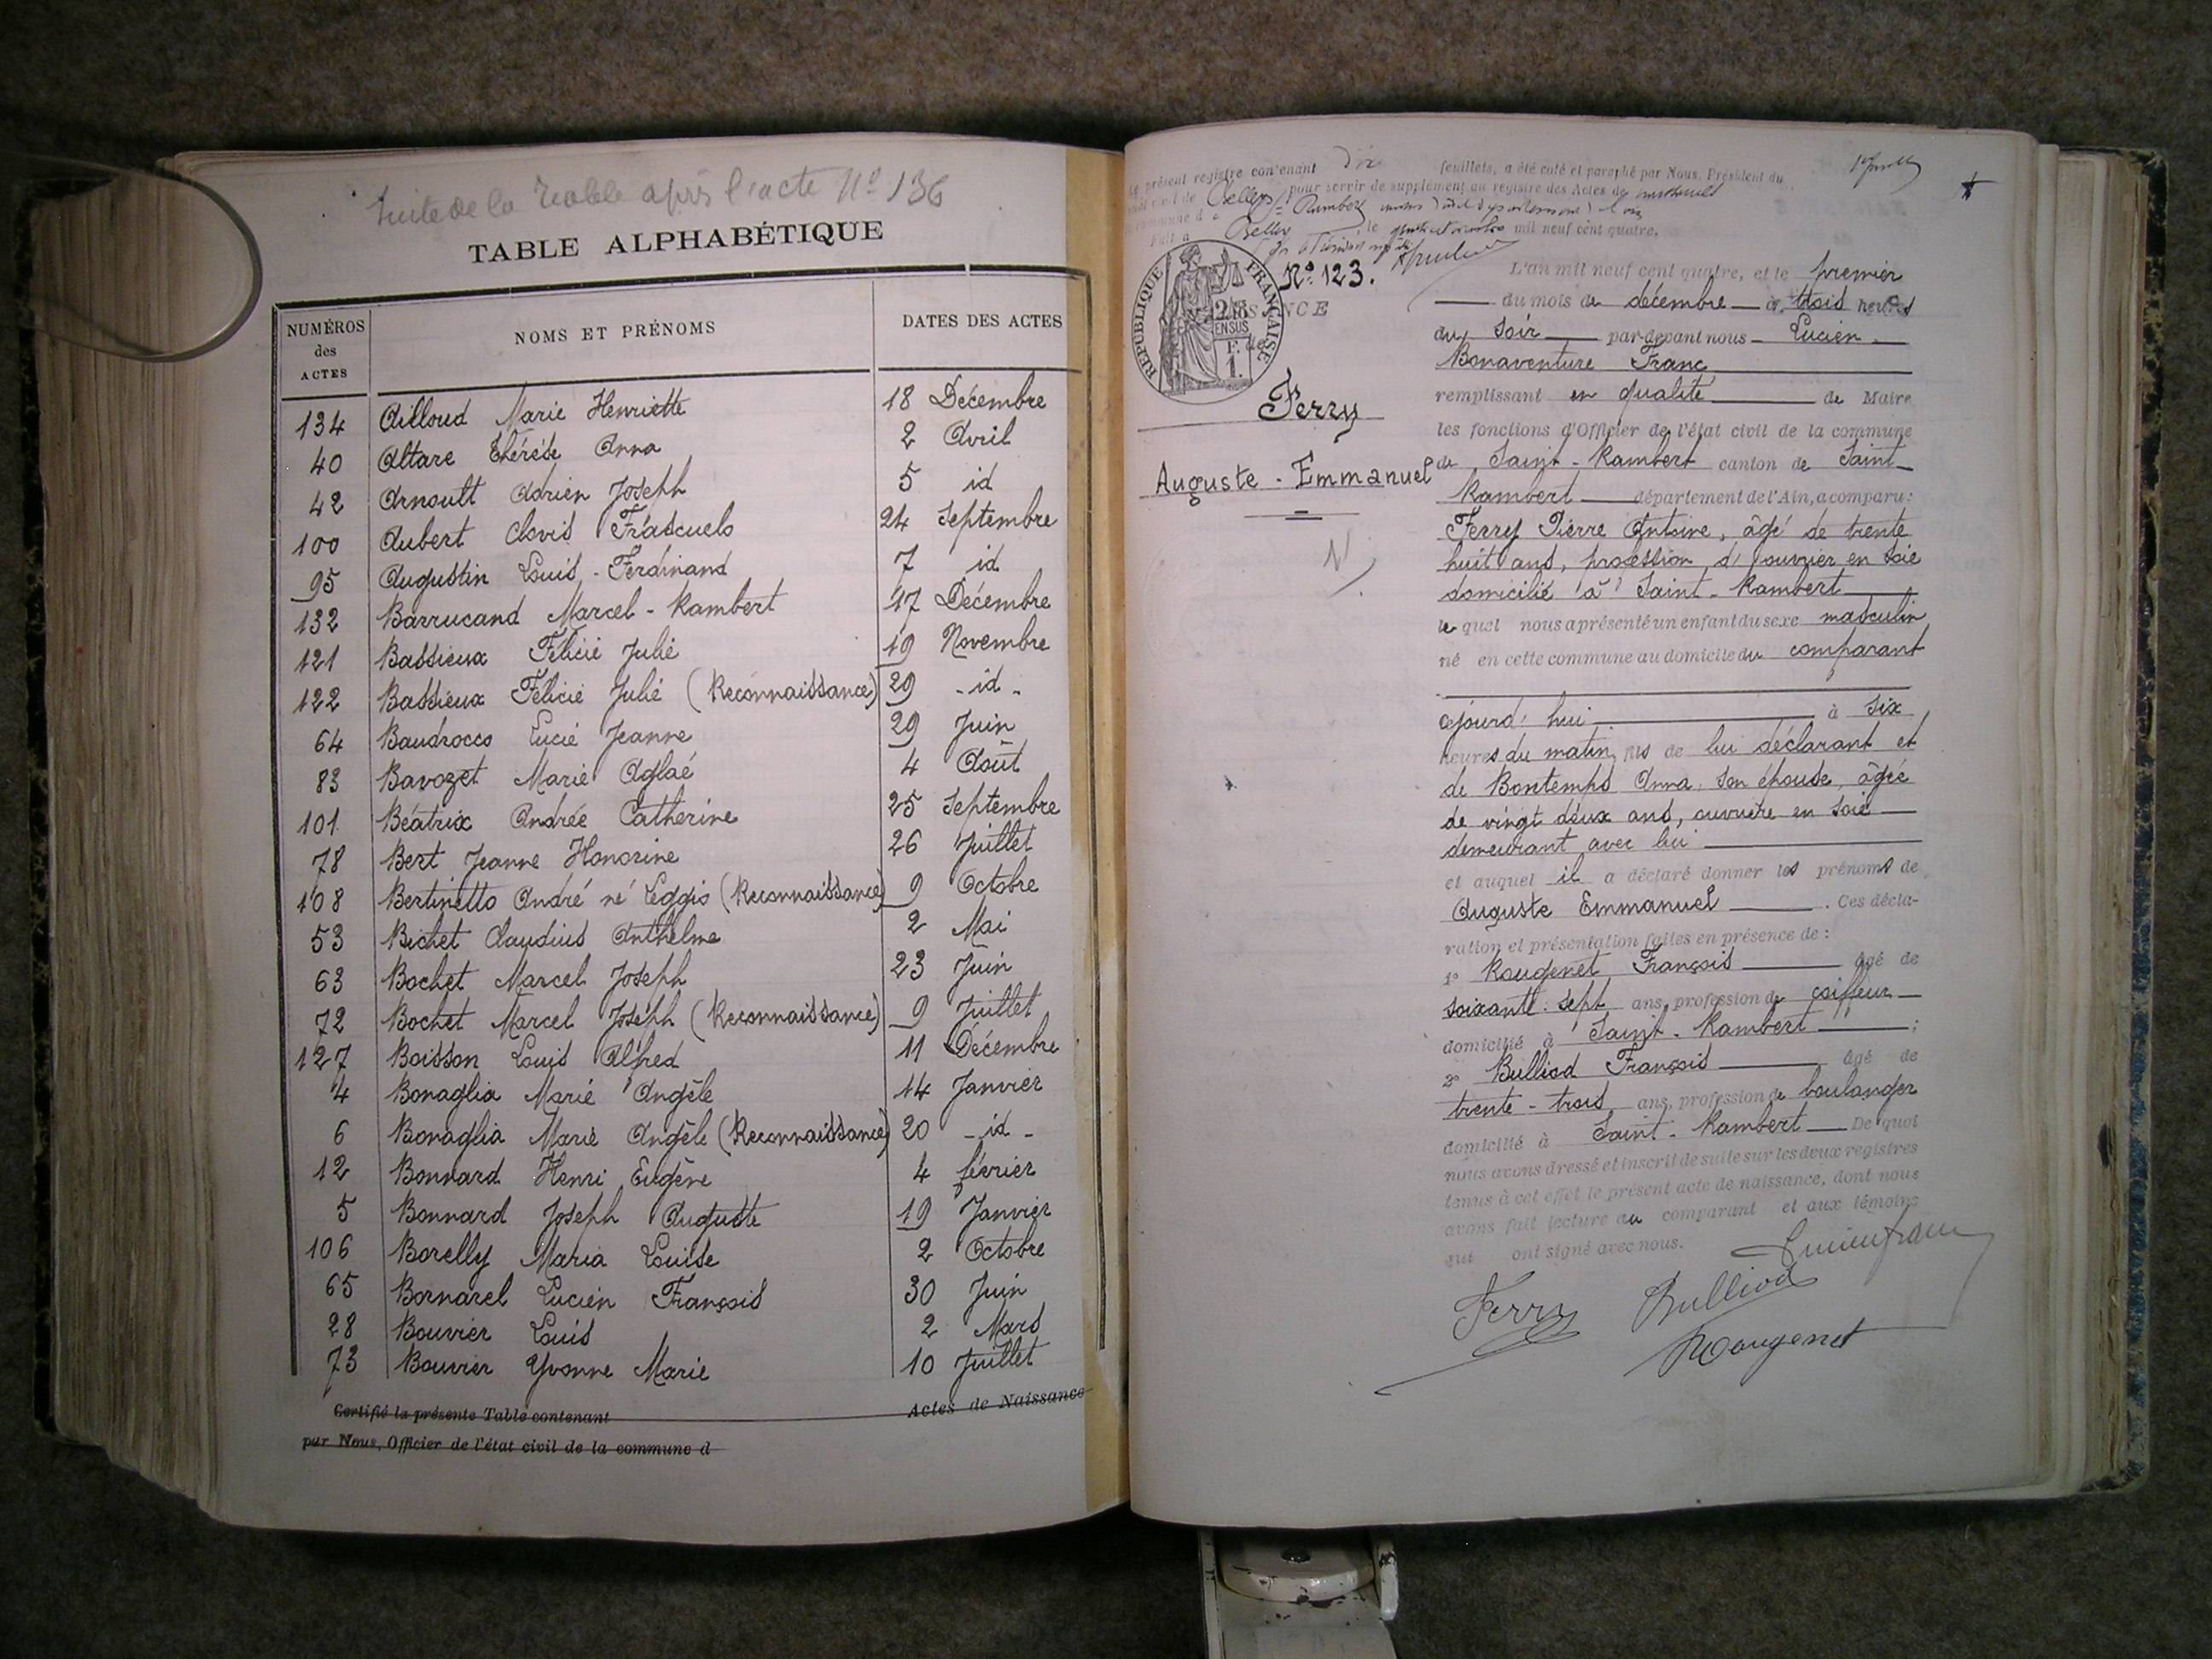 Suite de la Table après l'acte Nº 136
TABLE ALPHABÉTIQUE
NUMÉROS des ACTES NOMS ET PRÉNOMS DATES DES ACTES
134 Ailloud Marie Henriette 18 Décembre
40 Altare Thérèse Anna 2 Avril
42 Arnoult Adrien Joseph 5 id
100 Aubert Clovis Frascuelo 24 Septembre
95 Augustin Louis-Ferdinand 7 id
132 Barrucand Marcel-Rambert 17 Décembre
121 Bassieux Félicie Julie 19 Novembre
122 Bassieux Félicie Julie (Reconnaissance) 29 -id-
64 Baudrocco Lucie Jeanne 29 Juin
83 Bavozet Marie Aglaé 4 Août
101 Béatrix Andrée Catherine 25 Septembre
78 Bert Jeanne Honorine 26 Juillet
108 Bertinetto André né Leggio (Reconnaissance) 9 Octobre
53 Bichet Claudius Anthelme 2 Mai
63 Bochet Marcel Joseph 23 Juin
72 Bochet Marcel Joseph (Reconnaissance) 9 Juillet
127 Boisson Louis Alfred 11 Décembre
4 Bonaglia Marie Angèle 14 Janvier
6 Bonaglia Marie Angèle (Reconnaissance) 20 -id-
12 Bonnard Henri Eugène 4 février
5 Bonnard Joseph Auguste 19 Janvier
106 Borelly Maria Louise 2 Octobre
65 Bornarel Lucien François 30 Juin
28 Bouvier Louis 2 Mars
73 Bouvier Yvonne Marie 10 Juillet
Certifié la présente Table contenant Actes de Naissance
par Nous, Officier de l'état civil de la commune d
présent registre contenant dix feuillets, a été coté et paraphé par Nous, Président du
civil de Belley pour servir de supplément au registre des Actes de
Rambert
Fait a Belley, le mil neuf cent quatre.
RÉPUBLIQUE FRANÇAISE
Nº 123.
Ferry
Auguste-Emmanuel
L'an mil neuf cent quatre, et le premier
du mois de décembre à trois heures
du soir par-devant nous Lucien
Bonaventure Franc
remplissant en qualité de Maire
les fonctions d'Officier de l'état civil de la commune
de Saint-Rambert canton de Saint-
Rambert département de l'Ain, a comparu:
Ferry Pierre Antoine, âgé de trente
huit ans, profession d'ouvrier en soie
domicilié à Saint-Rambert
lequel nous a présenté un enfant du sexe masculin
né en cette commune au domicile du comparant
ajourd'hui à six
heures du matin, fils de lui déclarant et
de Bontemps Anna, son épouse, âgée
de vingt deux ans, ouvrière en soie
demeurant avec lui
et auquel il a déclaré donner les prénoms de
Auguste Emmanuel. Ces décla-
ration et présentation faites en présence de:
1º Rougenet François âgé de
soixante-sept ans, profession de coiffeur
domicilié à Saint-Rambert;
2º Bulliod François âgé de
trente-trois ans, profession de boulanger
domicilié à Saint-Rambert De quoi
nous avons dressé et inscrit de suite sur les deux registres
tenus à cet effet le présent acte de naissance, dont nous
avons fait lecture au comparant et aux témoins
qui ont signé avec nous.
Lucien Franc
Ferry Bulliod
Rougenet